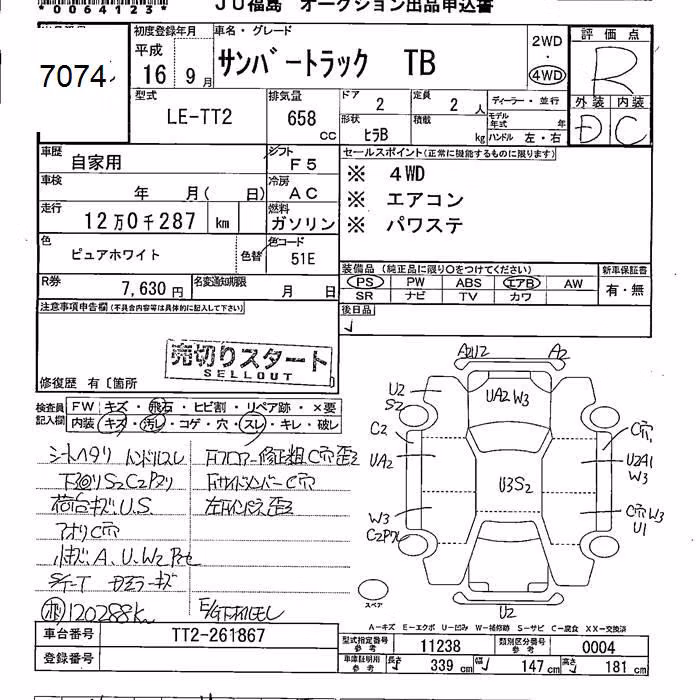 *0064123*
JU福島 オークション出品申込書
7074
初度登録年月
平成
16年 9月
車名・グレード
サンバートラック TB
2WD
・
4WD
評価点
R
外装 内装
D C
型式
LE-TT2
排気量
658 cc
ドア 2
定員 2人
形状 ヒラB
積載 kg
ディーラー・並行
モデル年式 年
ハンドル 左・右
車歴 自家用
シフト F5
車検 年 月( 日)
冷房 AC
走行 12万0千287 km
燃料 ガソリン
色 ピュアホワイト
色替
色コード 51E
R券 7,630円
名変通知期限 月 日
セールスポイント(正常に機能するものに限ります)
※ 4WD
※ エアコン
※ パワステ
装備品(純正品に限り○をつけてください)
新車保証書
PS PW ABS エアB AW
有・無
SR ナビ TV カワ
後日品
注意事項申告欄(不具合内容等は具体的に記入して下さい)
売切りスタート
SELLOUT
修復歴 有〔箇所 〕
検査員記入欄
FW キズ・飛石・ヒビ割・リペア跡・×要
内装 キズ・汚レ・コゲ・穴・スレ・キレ・破レ
シートヘタリ ハンドルスレ
下回りS2C2
荷台キズU.S
アオリC穴
小キズ、A、U、W2
120288k
Fフロアー修正粗C穴歪ミ
FサイドメンバーC穴
左Fインパネ歪ミ
A2U2
A2
U2
S2
UA2W3
C2
UA2
W3
U3S2
C穴
U2A1
W3
C穴W3
U1
U2
スペア
A-キズ E-エクボ U-凹み W-補修跡 S-サビ C-腐食 XX-交換済
車台番号 TT2-261867
登録番号
型式指定番号 参考 11238
類別区分番号 参考 0004
車庫証明用 参考
長さ 339 cm
幅 147 cm
高さ 181 cm